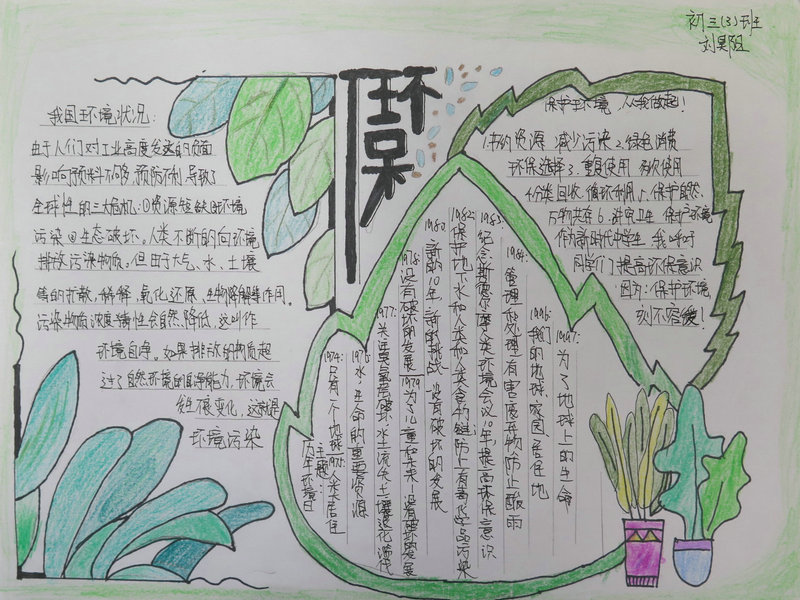 初三(3)班
刘昊
环保
我国环境状况:
由于人们对工业高度发达的负面
影响预料不够,预防不利,导致了
全球性的三大危机:①资源短缺②环境
污染③生态破坏。人类不断的向环境
排放污染物质。但由于大气、水、土壤
等的扩散,稀释、氧化还原、生物降解等作用。
污染物质浓度毒性会自然降低,这叫作
环境自净。如果排放的物质超
过了自然环境的自净能力,环境会
发生不良变化,这就是
环境污染
保护环境,从我做起!
1.节约资源 减少污染 2.绿色消费
环保选择 3.重复使用 多次使用
4.分类回收 循环利用 5.保护自然、
万物共存 6.讲究卫生 保护环境
作为新时代中学生 我呼吁
同学们提高环保意识
因为:保护环境,
刻不容缓!
历年环境日
主题
1974:只有一个地球 1975:人类居住
1976:水,生命的重要资源
1977:关注臭氧层破坏,水土流失土壤退化
1978:没有破坏的发展 1979为了儿童和未来——没有破坏的发展
1980:新的10年,新的挑战,没有破坏的发展
1982:保护地下水和人类和人类食物链,防止有毒化学品污染
1983:纪念斯德哥尔摩人类环境会议10年,提高环保意识
1984:管理和处理有害废弃物,防止酸雨
1996:我们的地球、家园、居住地
1997:为了地球上的生命